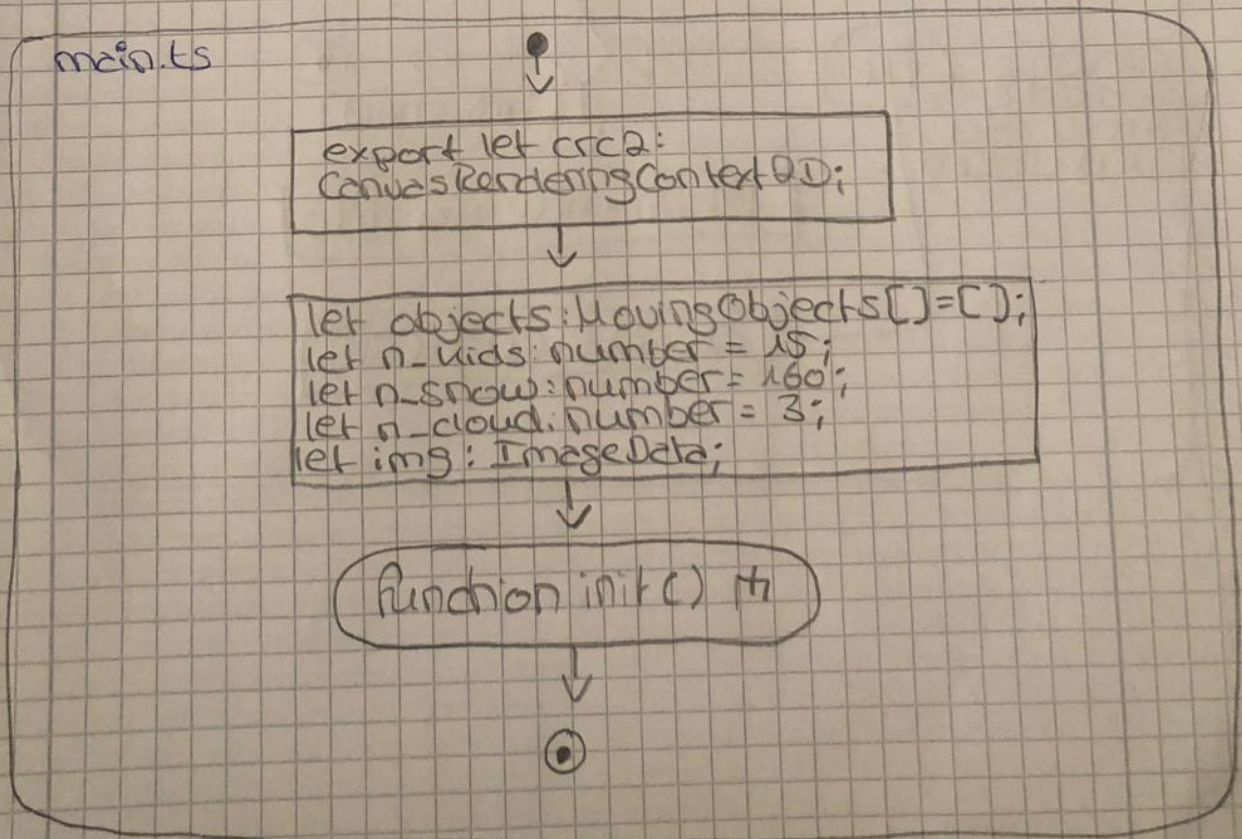 main.ts
export let crc2:
CanvasRenderingContext2D;
let objects:MovingObjects[]=[];
let n_kids:number = 15;
let n_snow:number= 160;
let n_cloud:number = 3;
let img: ImageData;
function init()